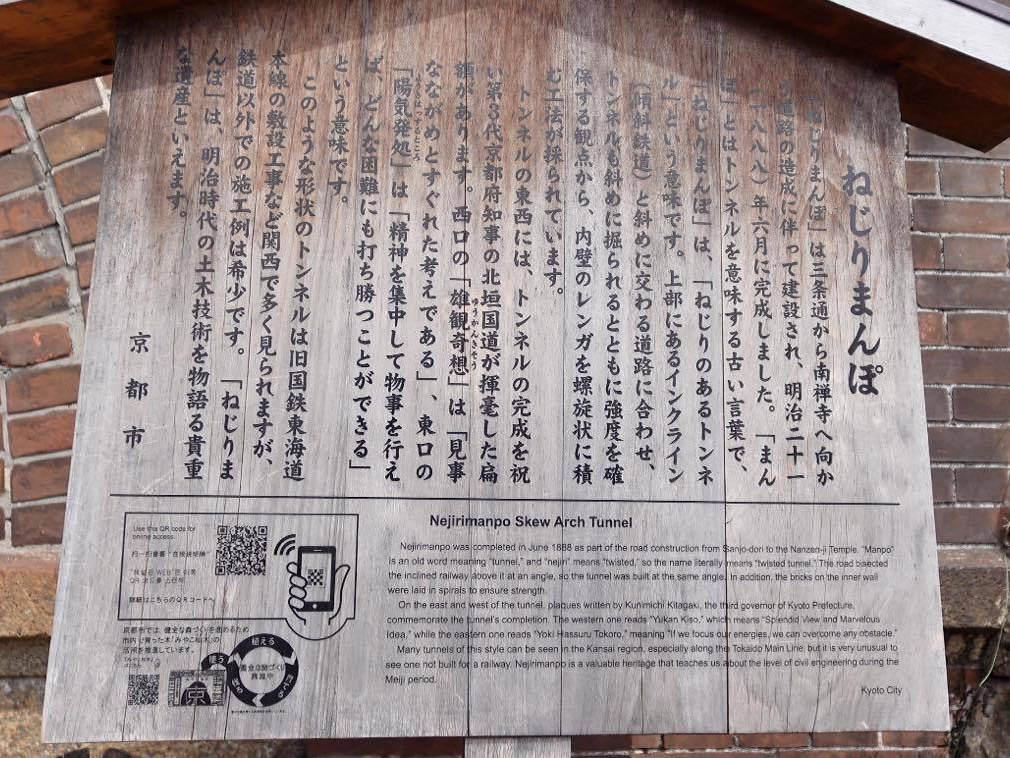 ねじりまんぽ
「ねじりまんぽ」は三条通から南禅寺へ向か
う道路の造成に伴って建設され、明治二十一
(一八八八)年六月に完成しました。「まん
ぽ」とはトンネルを意味する古い言葉で、
「ねじりまんぽ」は、「ねじりのあるトンネ
ル」という意味です。上部にあるインクライン
(傾斜鉄道)と斜めに交わる道路に合わせ、
トンネルも斜めに掘られるとともに強度を確
保する観点から、内壁のレンガを螺旋状に積
む工法が採られています。
トンネルの東西には、トンネルの完成を祝
い第3代京都府知事の北垣国道が揮毫した扁
額があります。西口の「雄観奇想」は「見事
ゆうかんきそう
なながめとすぐれた考えである」、東口の
「陽気発処」は「精神を集中して物事を行え
ようきはっするところ
ば、どんな困難にも打ち勝つことができる」
という意味です。
このような形状のトンネルは旧国鉄東海道
本線の敷設工事など関西で多く見られますが、
鉄道以外での施工例は希少です。「ねじりま
んぽ」は、明治時代の土木技術を物語る貴重
な遺産といえます。
京都市
Use this QR code for
online access.
扫一扫查看"在线说明牌"
QR 코드를 스캔
詳細はこちらのQRコードへ
京都市では、健全な森づくりを進めるため、
市内で育った木「みやこ杣木」の
活用を推進しています。
植える
使う
京
Nejirimanpo Skew Arch Tunnel
Nejirimanpo was completed in June 1888 as part of the road construction from Sanjo-dori to the Nanzen-ji Temple. "Manpo"
is an old word meaning "tunnel," and "nejiri" means "twisted," so the name literally means "twisted tunnel." The road bisected
the inclined railway above it at an angle, so the tunnel was built at the same angle. In addition, the bricks on the inner wall
were laid in spirals to ensure strength.
On the east and west of the tunnel, plaques written by Kunimichi Kitagaki, the third governor of Kyoto Prefecture,
commemorate the tunnel's completion. The western one reads "Yukan Kiso," which means "Splendid View and Marvelous
Idea," while the eastern one reads "Yoki Hassuru Tokoro," meaning "If we focus our energies, we can overcome any obstacle."
Many tunnels of this style can be seen in the Kansai region, especially along the Tokaido Main Line, but it is very unusual to
see one not built for a railway. Nejirimanpo is a valuable heritage that teaches us about the level of civil engineering during the
Meiji period.
Kyoto City